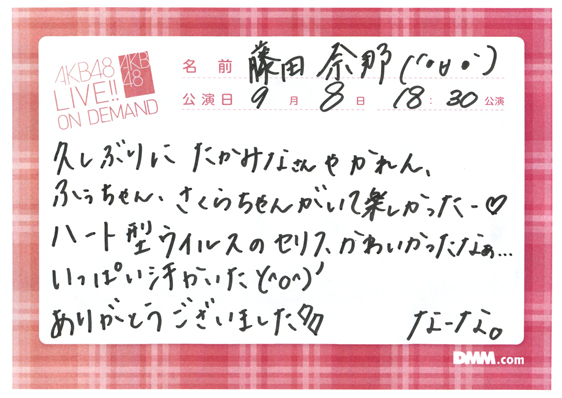 AKB48
LIVE!!
ON DEMAND
AKB
48
名前 藤田奈那(˘•ט•˘)
公演日 9月8日 18:30公演
久しぶりに たかみなさんやかれん、
ふぅちゃん、さくらちゃんがいて楽しかったー♡
ハート型ウイルスのセリフかわいかったなぁ…
いっぱい汗かいた\(^o^)/
ありがとうございました
なーな。
DMM.com